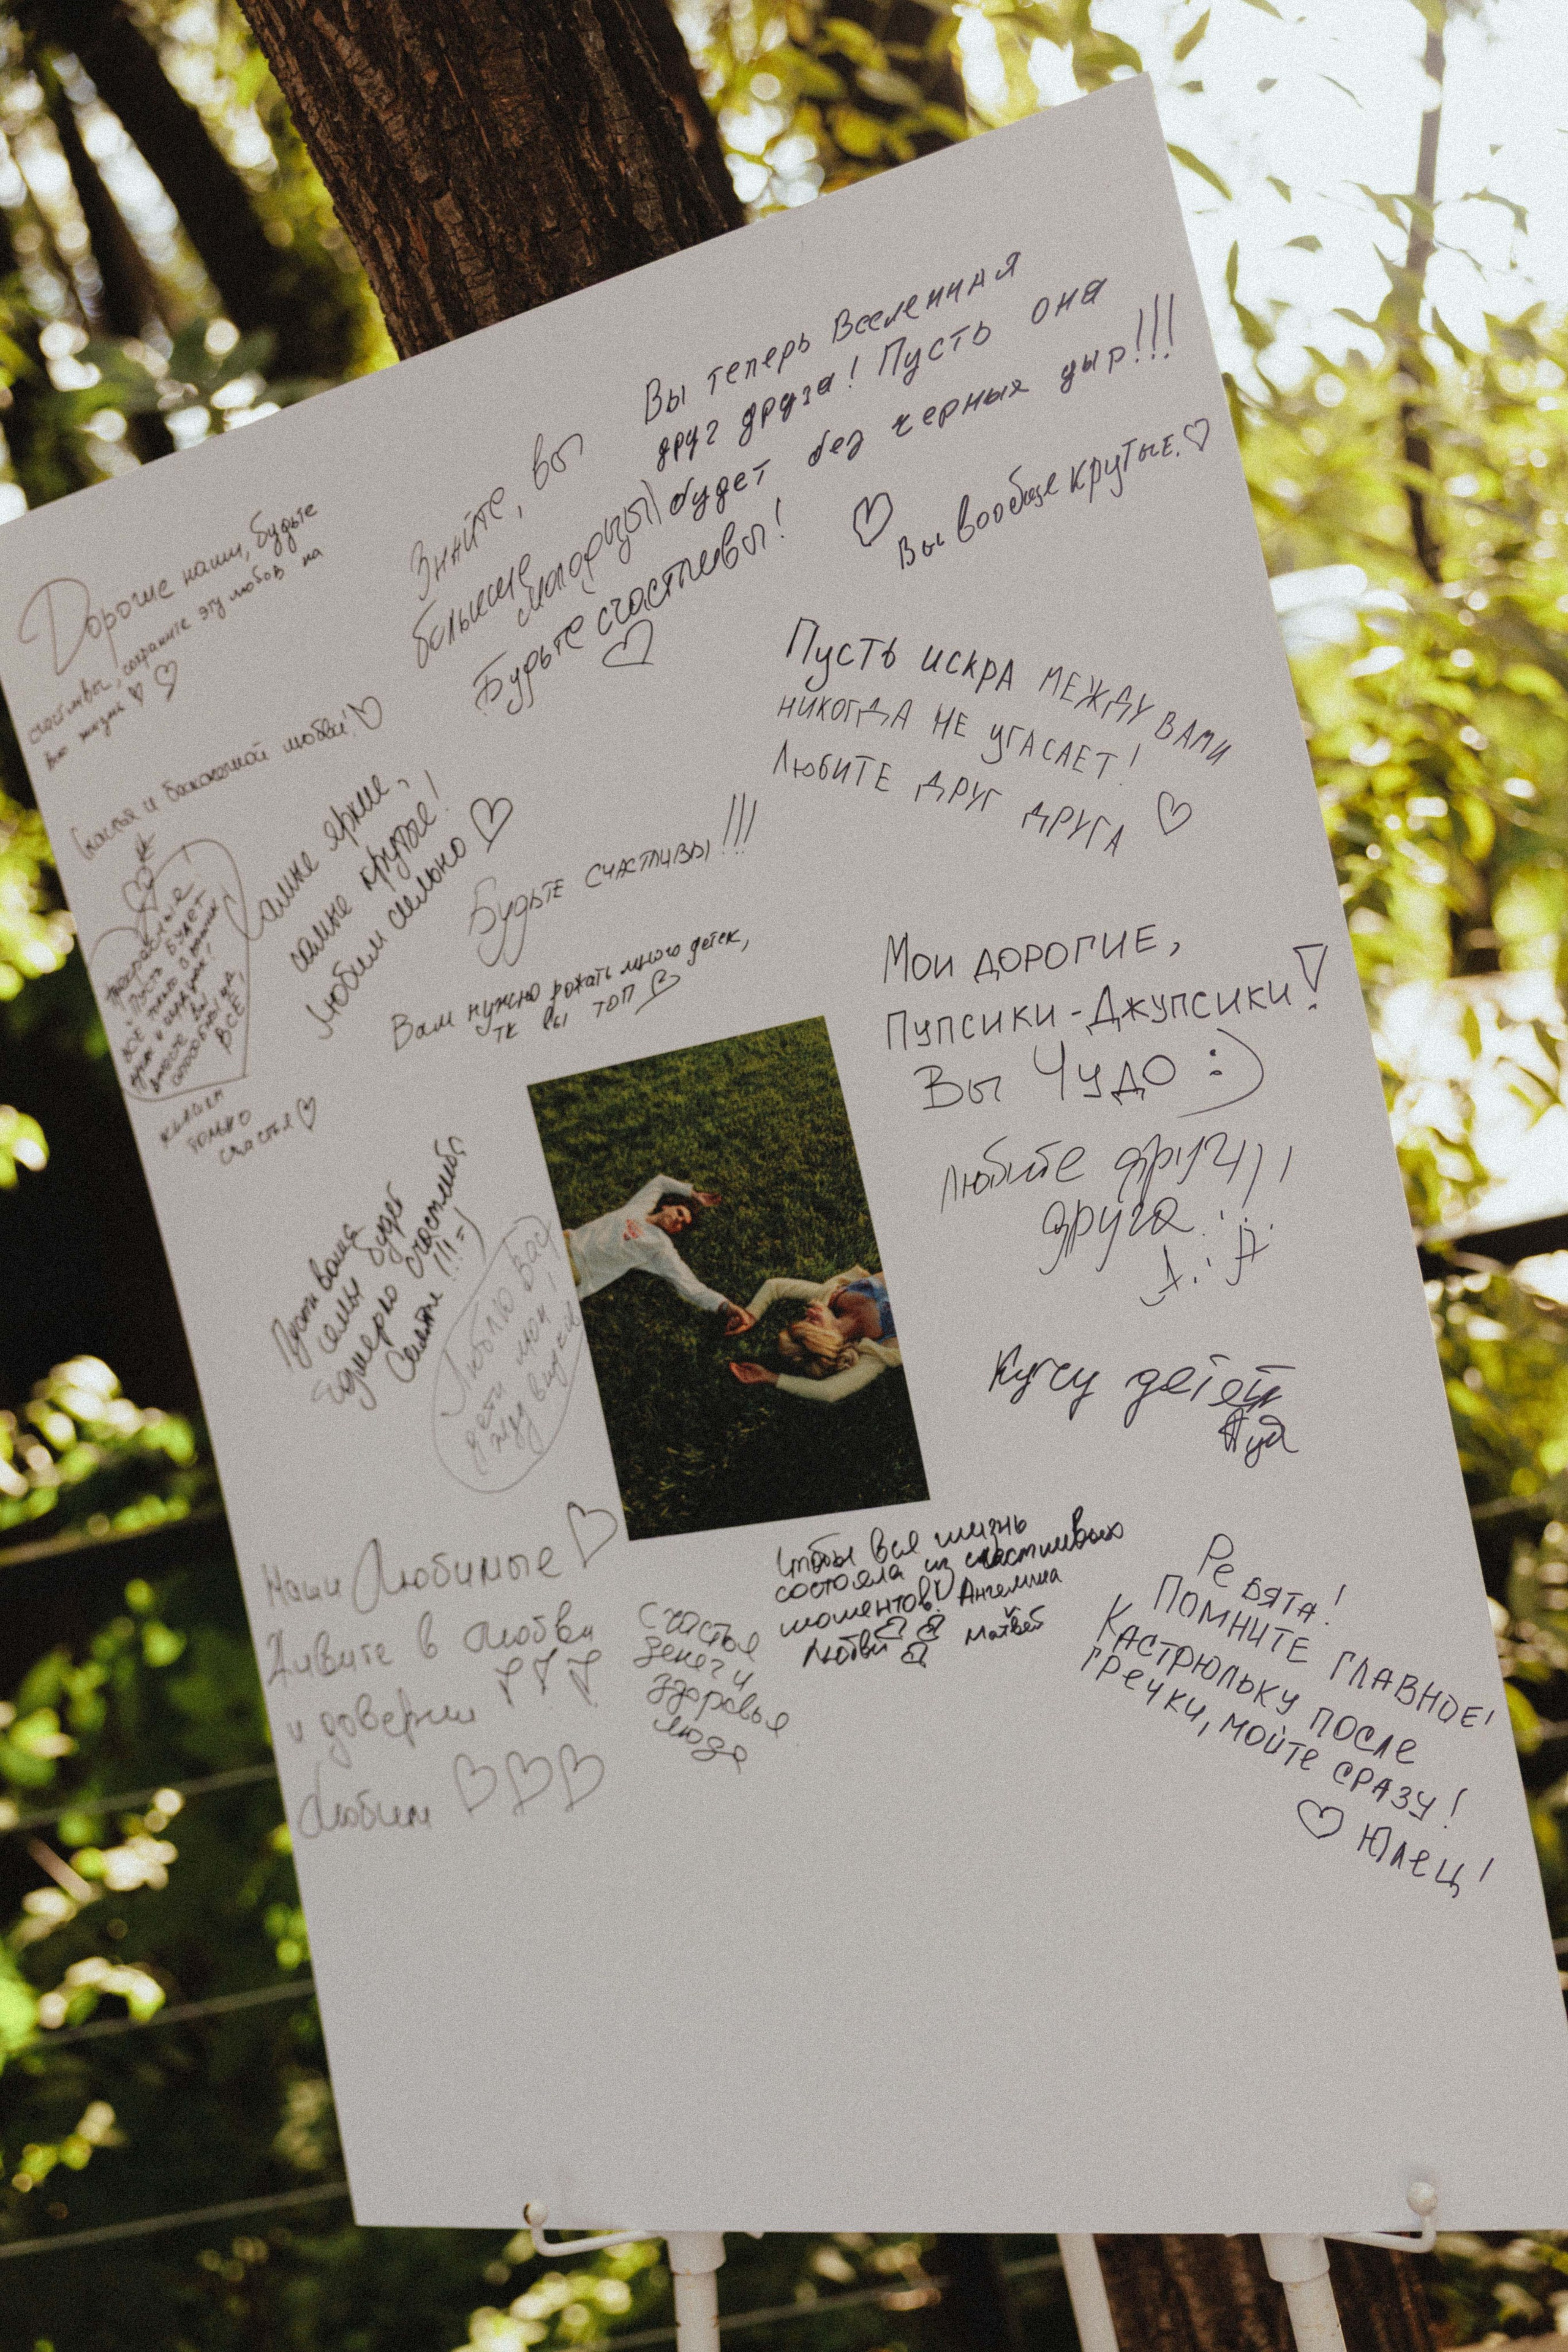 Вы теперь Вселенная
друг друга! Пусть она
будет без черных дыр!!!
Вы вообще крутые.
Знайте, вы
большие
молодцы)
Будьте счастливы!
Дорогие наши, будьте
счастливы, сохраните эту любовь на
всю жизнь
Счастья и бесконечной любви!
Самые яркие,
самые крутые!
Любим сильно
Прекрасные!
Пусть будет
всё только
вместе вы
ВСЁ!
только
счастья
Будьте счастливы!!!
Вам нужно рожать много деток,
тк вы топ
Пусть искра между вами
никогда не угасает!
Любите друг друга
Мои дорогие,
Пупсики-Джупсики!
Вы Чудо :)
Любите друг
друга
Кучу детей
Пусть ваша
семья будет
счастлива
!!! =)
Люблю Вас
дети мои,
жду внуков
Наши Любимые
Живите в любви
и доверии
Любим
Счастья
денег и
здоровья
люда
Чтобы вся жизнь
состояла из счастливых
моментов! Ангелина
Любви Матвей
Ребята!
Помните главное!
Кастрюльку после
гречки, мойте сразу!
Юлец!